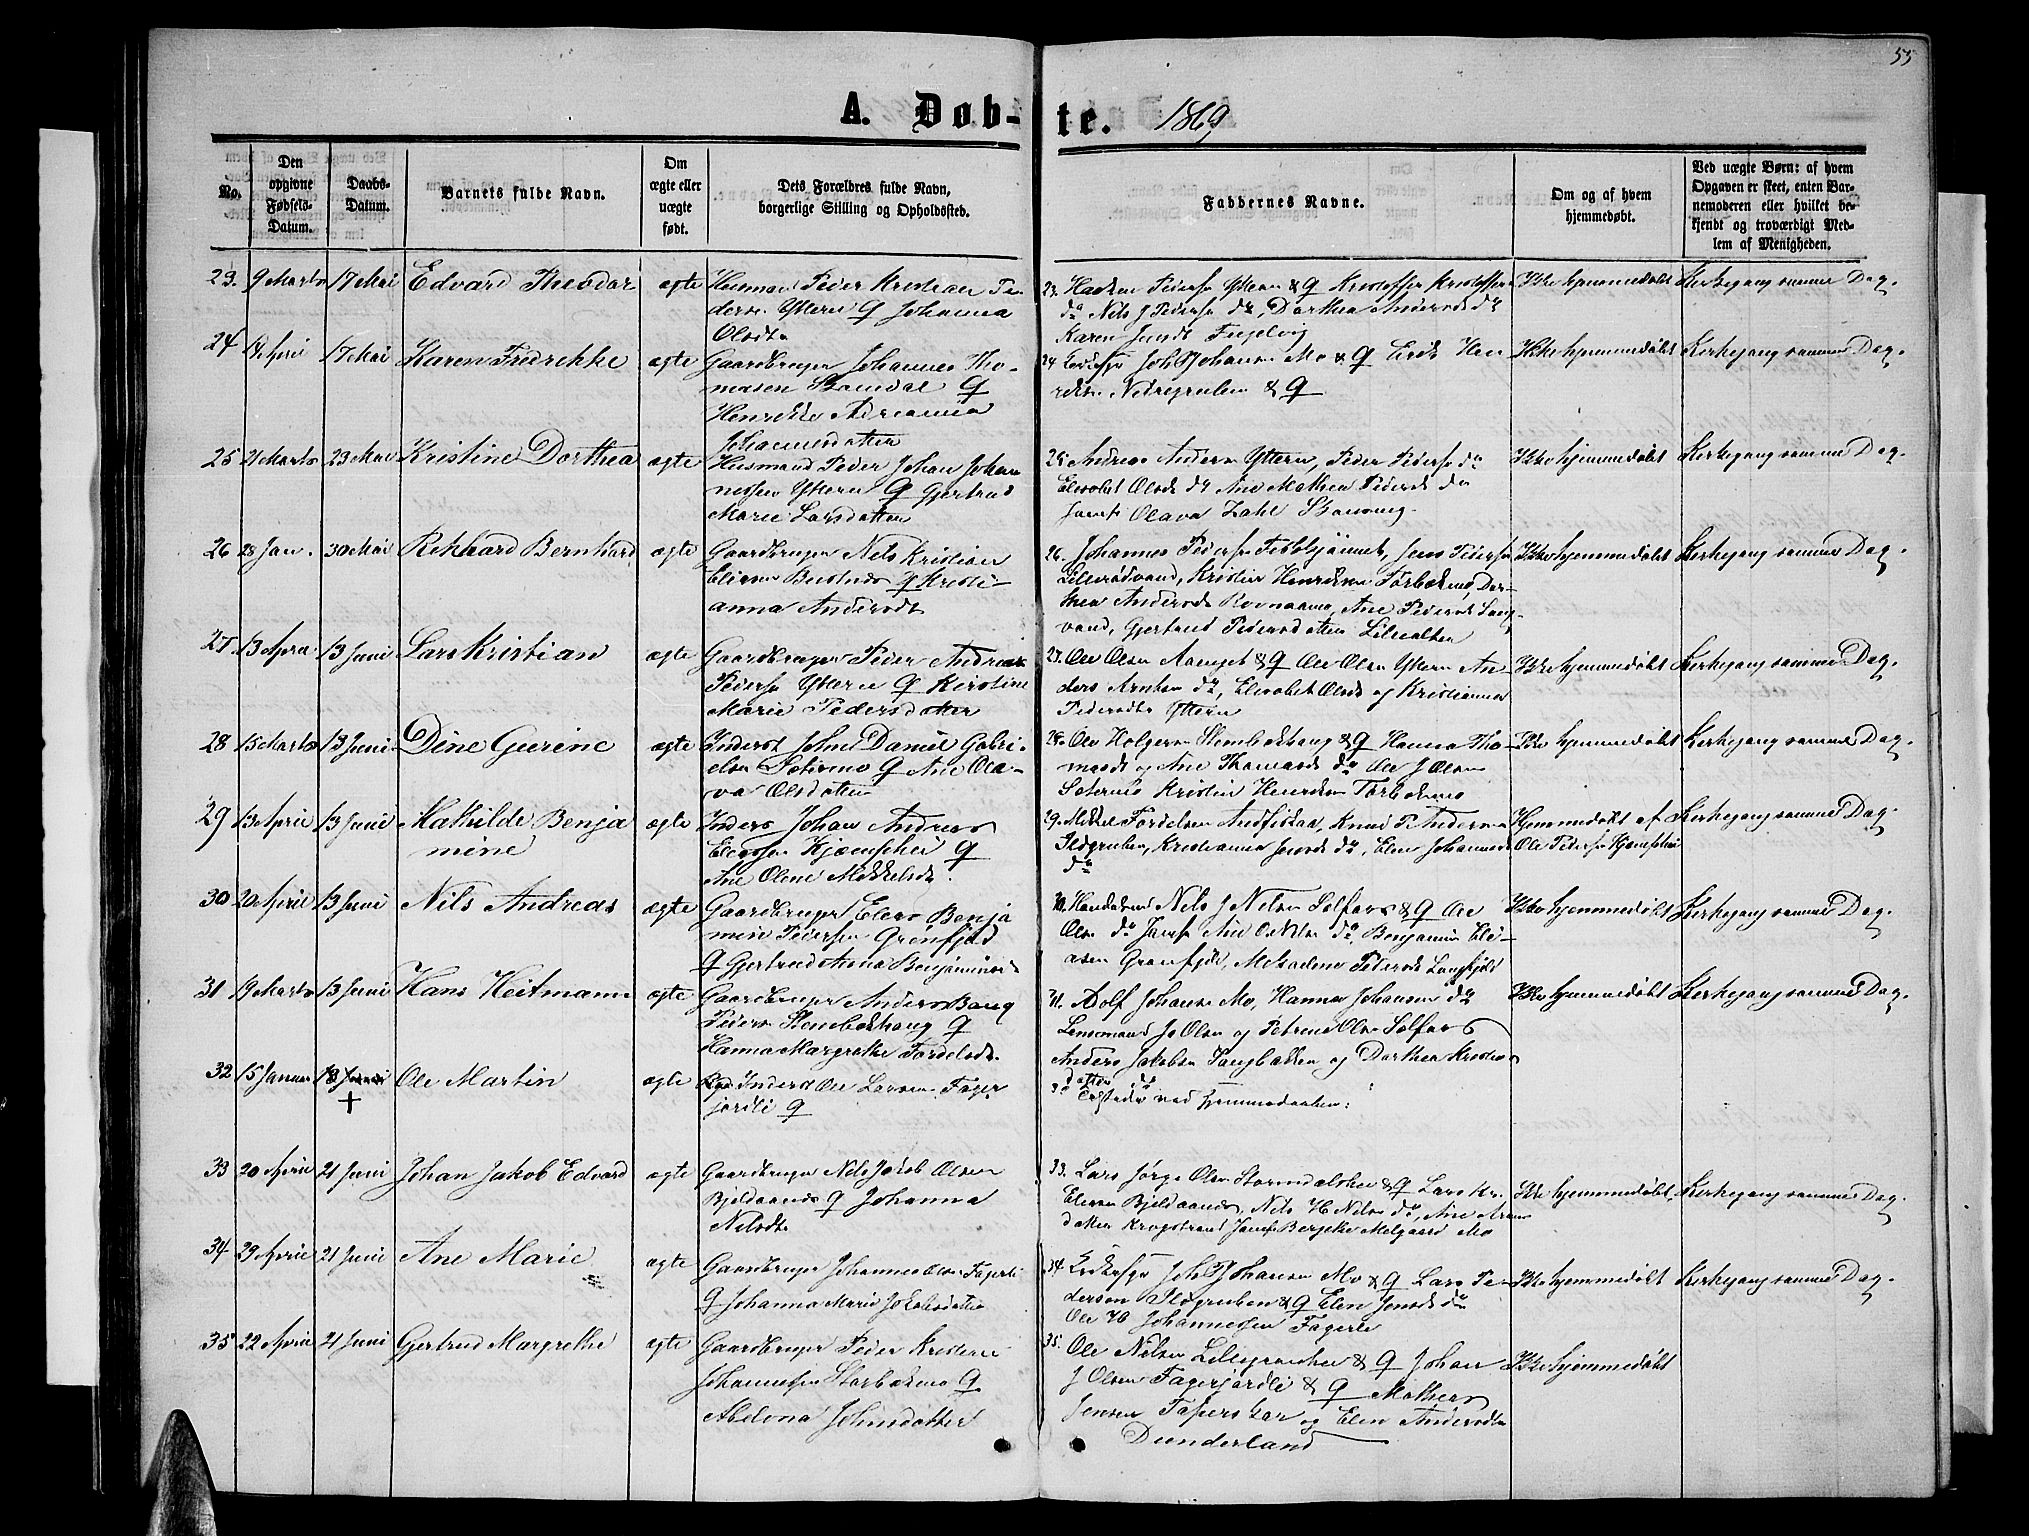 55
A. Døb- te. 1869
No.
Den opgivne Fødsels-Datum.
Daabs-Datum.
Barnets fulde Navn.
Om ægte eller uægte født.
Dets Forældres fulde Navn, borgerlige Stilling og Opholdssted.
Faddernes Navne.
Om og af hvem hjemmedøbt.
Ved uægte Børn: af hvem Opgaven er skeet, enten Barnemoderen eller hvilket bekjendt og troværdigt Medlem af Menigheden.
23. 9 Marts 17 Mai Edvard Theodor ægte Husmand Peder Kristian Pe-
ders. Yttern & Johanna
Olsdtr
23. Pederse Yttern & Kristoffer Kristoffers
do Nils J Pederse do, Dorthea Andersdt do
Karen Jensdt
Ikke hjemmedøbt Kirkegang samme Dag.
24 April 17 Mai Karen Fredrikke ægte Gaardbruger Johannes Tho-
masen &
Henrikke Adrianna
Johannesdatter
24 Johansen Mo & Erik Hen-
riks. Nedregruben &
Ikke hjemmedøbt Kirkegang samme Dag.
25 21 Marts 23 Mai Kristine Dorthea ægte Husmand Peder Johan Johan
nessen Yttern & Gjertrud
Marie Larsdatter
25. Andreas Anders Yttern, Peder Pederse do
Elisabet Olsdt do Ane Mathea Pedersdt do
Olava Zahl
Ikke hjemmedøbt Kirkegang samme Dag.
26 28 Jan. 30 Mai Rikhard Bernhard ægte Gaardbruger Nils Kristian
Eliasen & Kristi-
anna Andersdt
26. Johannes Pederse Jens Pederse
Kristine Henriksen Dor-
thea Andersdt Ane Pedersdt Lang-
vand, Gjertrud Pedersdatter
Ikke hjemmedøbt Kirkegang samme Dag.
27 13 April 13 Juni Lars Kristian ægte Gaardbruger Peder Andreas
Pederse Yttern & Kirstine
Marie Pedersdatter
27. Ole Olsen & Ole Olsen Yttern An-
ders do, Elisabet Olsdt og Kristianna
Pedersdtr Yttern
Ikke hjemmedøbt Kirkegang samme Dag.
28 15 Marts 13 Juni Dine Gurine ægte Inderst John Daniel Gabri-
elsen & Ane Ola-
va Olsdatter
28. Ole Holgersen & Hanna Tho-
masdt og Ane Thomasdt do Ole J Olsen
Kristen Henriksen
Ikke hjemmedøbt Kirkegang samme Dag.
29 13 April 13 Juni Mathilde Benja
mine ægte Inders Johan Andreas
&
Ane Oline Mikkelsdt.
29. Mikkel Knud P. Andersen
Ildgruben, Kristianna Jensdt do, Elen Johannesdt
do
Hjemmedøbt af
Ole Pederse
Kirkegang samme Dag
30 20 April 13 Juni Nils Andreas ægte Gaardbruger Elias Benja
min Pedersen Grønfjeld
& Gjertrud Anna Benjaminsdt
30. Nils J Nilsen & Ole
Ols. do Ane do, Benjamin Eli-
asen Grønfjeld, Pedersdt Langfjeld
Ikke hjemmedøbt Kirkegang samme Dag.
31 19 Marts 13 Juni Hans Heitmann ægte Gaardbruger Anders Bang
Peders &
Hanna Margrethe
31. Adolf Johansen Mo, Hanna Johansen do
Lensmand J. Olsen og Petrine Olsen
Anders Jakobsen og Dorthea Kristens
datter do
Ikke hjemmedøbt Kirkegang samme Dag.
32 15 Januar Ole Martin ægte Inderst Ole Larsen Fager-
jordli &
32 ved Hjemmedaaben:
33 20 April 21 Juni Johan Jakob Edvard ægte Gaardbruger Nils Jakob Olsen
Bjeldaanes & Johanna
Nilsdt
33. Lars Jørg. Olsen & Lars Kr.
Eliasen Bjeldaanes, Nils H Nilsen do, Ane
datter Krogstrand Mo
Ikke hjemmedøbt, Kirkegang samme Dag.
34 29 April 21 Juni Ane Marie ægte Gaardbruger Johannes Olsen Fagerli
& Johanna Marie Jakobsdatter
34. Johansen Mo & Lars Pe-
dersen Ildgruben & Elen Jensdt do
Ole H Johannessen Fagerli
Ikke hjemmedøbt Kirkegang samme Dag.
35 22 April 21 Juni Gjertrud Margrethe ægte Gaardbruger Peder Kristian
Johannesen &
Abelona Johnsdatter
35. Ole Nilsen & Johan
J Olsen Fagerjordli & Mathias
Jensen og Elen Andersdtr
Dunderland
Ikke hjemmedøbt